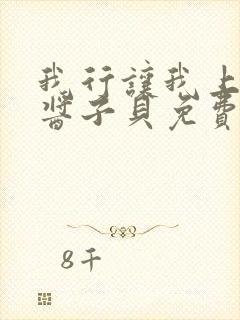 我行讓我上
醬子貝免費
8千